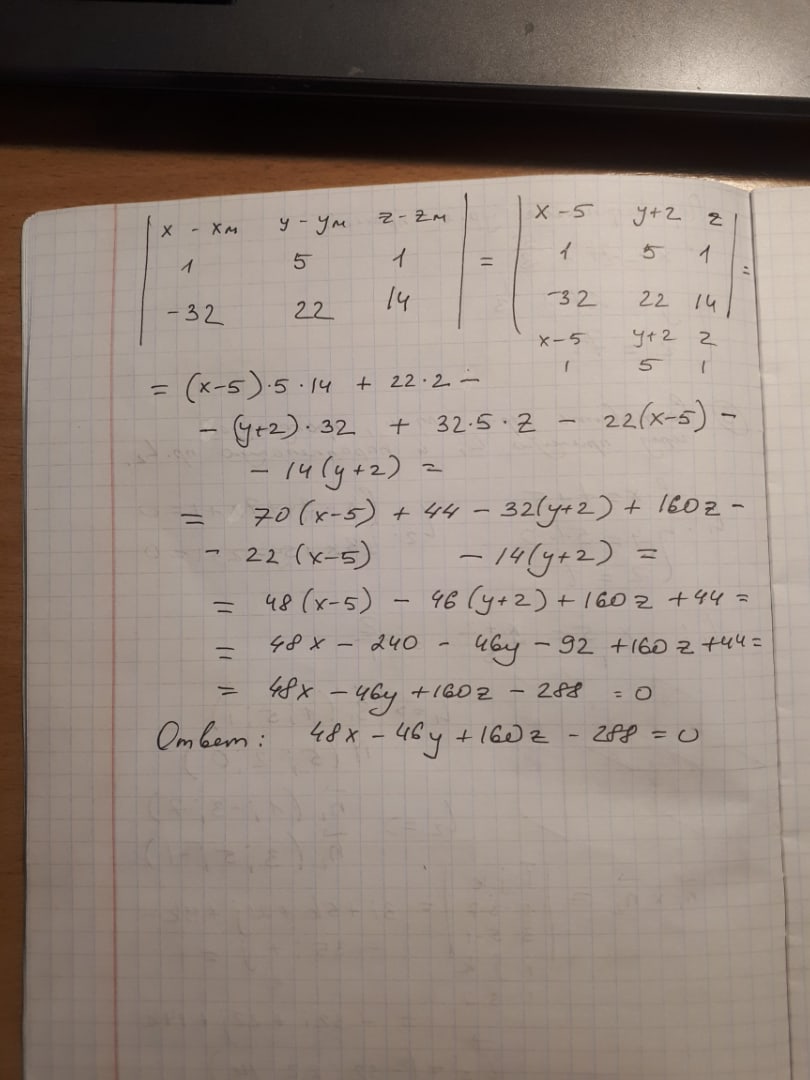 | x - xм   y - yм   z - zм |   | x-5   y+2   z |
| 1   5   1 | = | 1   5   1 | =
| -32   22   14 |   | -32   22   14 |
x-5   y+2   z
1   5   1
= (x-5)·5·14 + 22·2 -
- (y+2)·32 + 32·5·z - 22(x-5) -
- 14(y+2) =
= 70(x-5) + 44 - 32(y+2) + 160z -
- 22(x-5) - 14(y+2) =
= 48(x-5) - 46(y+2) + 160z + 44 =
= 48x - 240 - 46y - 92 + 160z + 44 =
= 48x - 46y + 160z - 288 = 0
Ответ: 48x - 46y + 160z - 288 = 0